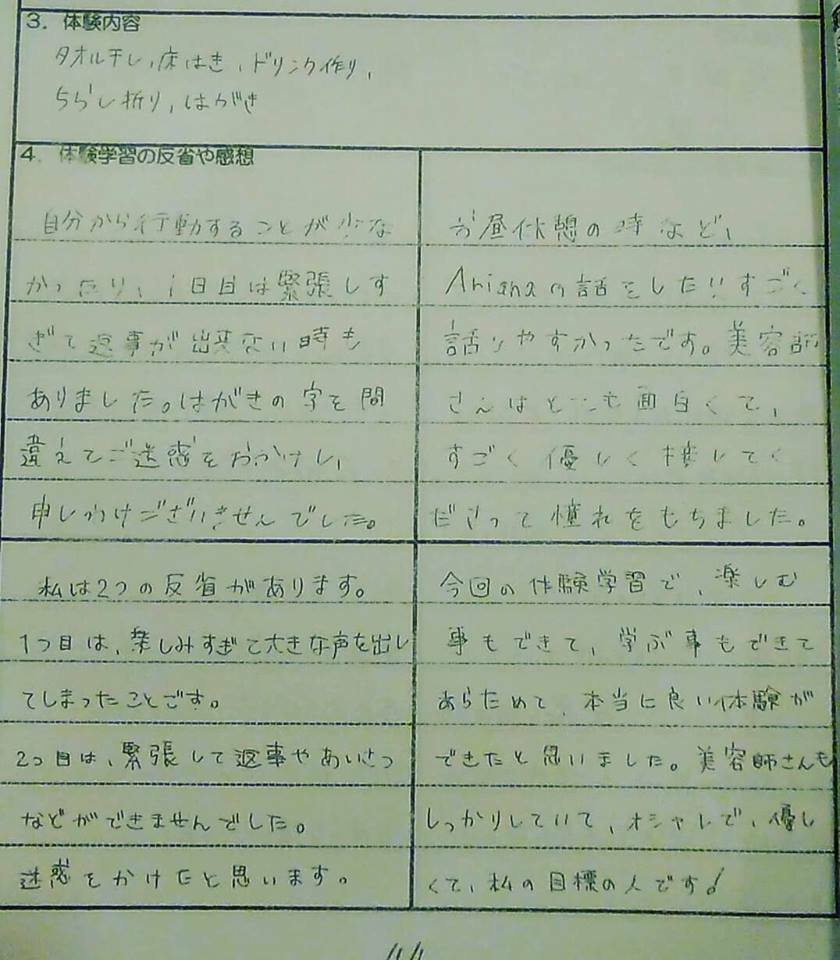 3. 体験内容
タオル干し、床はき、ドリンク作り、
ちらし折り、はがき
4. 体験学習の反省や感想
自分から行動することが少な
かったり、1日目は緊張しす
ぎて返事が出来ない時も
ありました。はがきの字を間
違えてご迷惑をおかけし、
申しわけございませんでした。
お昼休憩の時など、
Arianaの話をしたりすごく
話しやすかったです。美容師
さんはとても面白くて、
すごく優しく接してく
ださって憧れをもちました。
私は2つの反省があります。
1つ目は、楽しみすぎて大きな声を出し
てしまったことです。
2つ目は、緊張して返事やあいさつ
などができませんでした。
迷惑をかけたと思います。
今回の体験学習で、楽しむ
事もできて、学ぶ事もできて
あらためて、本当に良い体験が
できたと思いました。美容師さんも
しっかりしていて、オシャレで、優し
くて、私の目標の人です!